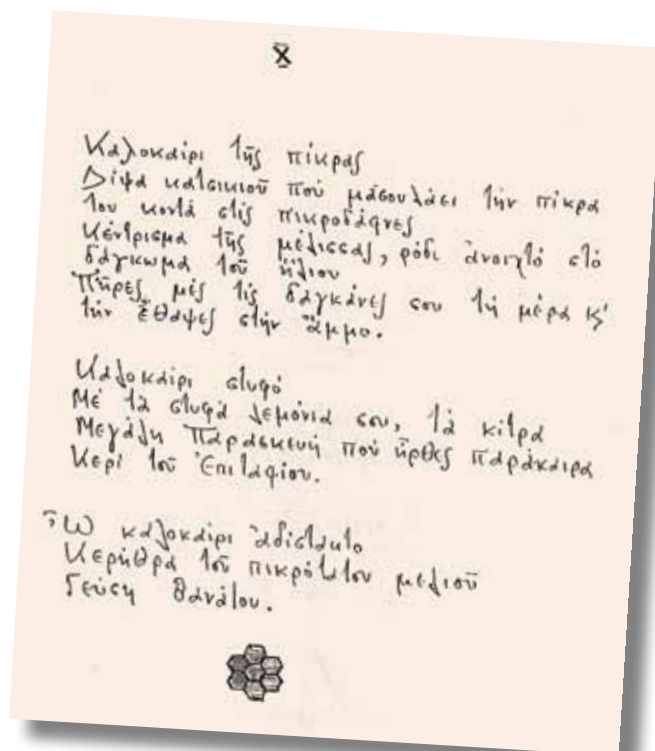 X
Καλοκαίρι τῆς πίκρας
Δίψα κατσικιοῦ πού μασουλάει τήν πίκρα
του κοντά στίς πικροδάφνες
Κέντρισμα τῆς μέλισσας, ρόδι ἀνοιχτό στό
δάγκωμα τοῦ ἥλιου
Πῆρες μές τίς δαγκάνες σου τή μέρα κι'
τήν ἔθαψες στήν ἄμμο.
Καλοκαίρι στυφό
Μέ τά στυφά λεμόνια σου, τά κίτρα
Μεγάλη Παρασκευή πού ἦρθες παράκαιρα
Κερί τοῦ Ἐπιταφίου.
Ὦ καλοκαίρι ἀδίστακτο
Κερήθρα τοῦ πικρότατου μελιοῦ
Γεύση θανάτου.